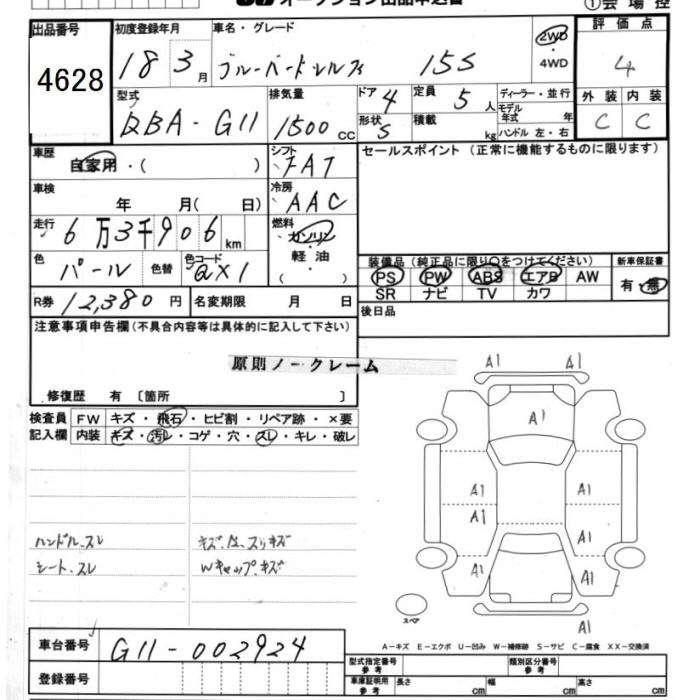 オークション出品申込書
①会場控
出品番号 初度登録年月 車名・グレード 評価点
4628 18 3月 ブルーバードシルフィ 15S 2WD・4WD 4
型式 排気量 ドア 定員 ディーラー・並行 外装 内装
DBA-G11 1500cc 4 5人 モデル年式 年 C C
形状 S 積載 kg ハンドル 左・右
車歴 自家用・( ) シフト FAT セールスポイント(正常に機能するものに限ります)
車検 年 月( 日) 冷房 AAC
走行 6万3千906km 燃料 ガソリン・軽油・
色 パール 色替 色コード QX1 装備品(純正品に限り○をつけてください) 新車保証書
PS PW ABS エアB AW 有・無
SR ナビ TV カワ
R券 12,380円 名変期限 月 日 後日品
注意事項申告欄(不具合内容等は具体的に記入して下さい)
原則ノークレーム
修復歴 有〔箇所 〕
検査員 FW キズ・飛石・ヒビ割・リペア跡・×要
記入欄 内装 キズ・汚レ・コゲ・穴・スレ・キレ・破レ
A1 A1
A1
A1 A1
A1
A1
A1 A1
A1
ハンドル.スレ キズ.凹.スリキズ
シート.スレ Wキャップ.キズ
スペア
A-キズ E-エクボ U-凹み W-補修跡 S-サビ C-腐食 XX-交換済
車台番号 G11-002924
型式指定番号 参考 類別区分番号 参考
登録番号 車庫証明用 参考 長さ cm 幅 cm 高さ cm